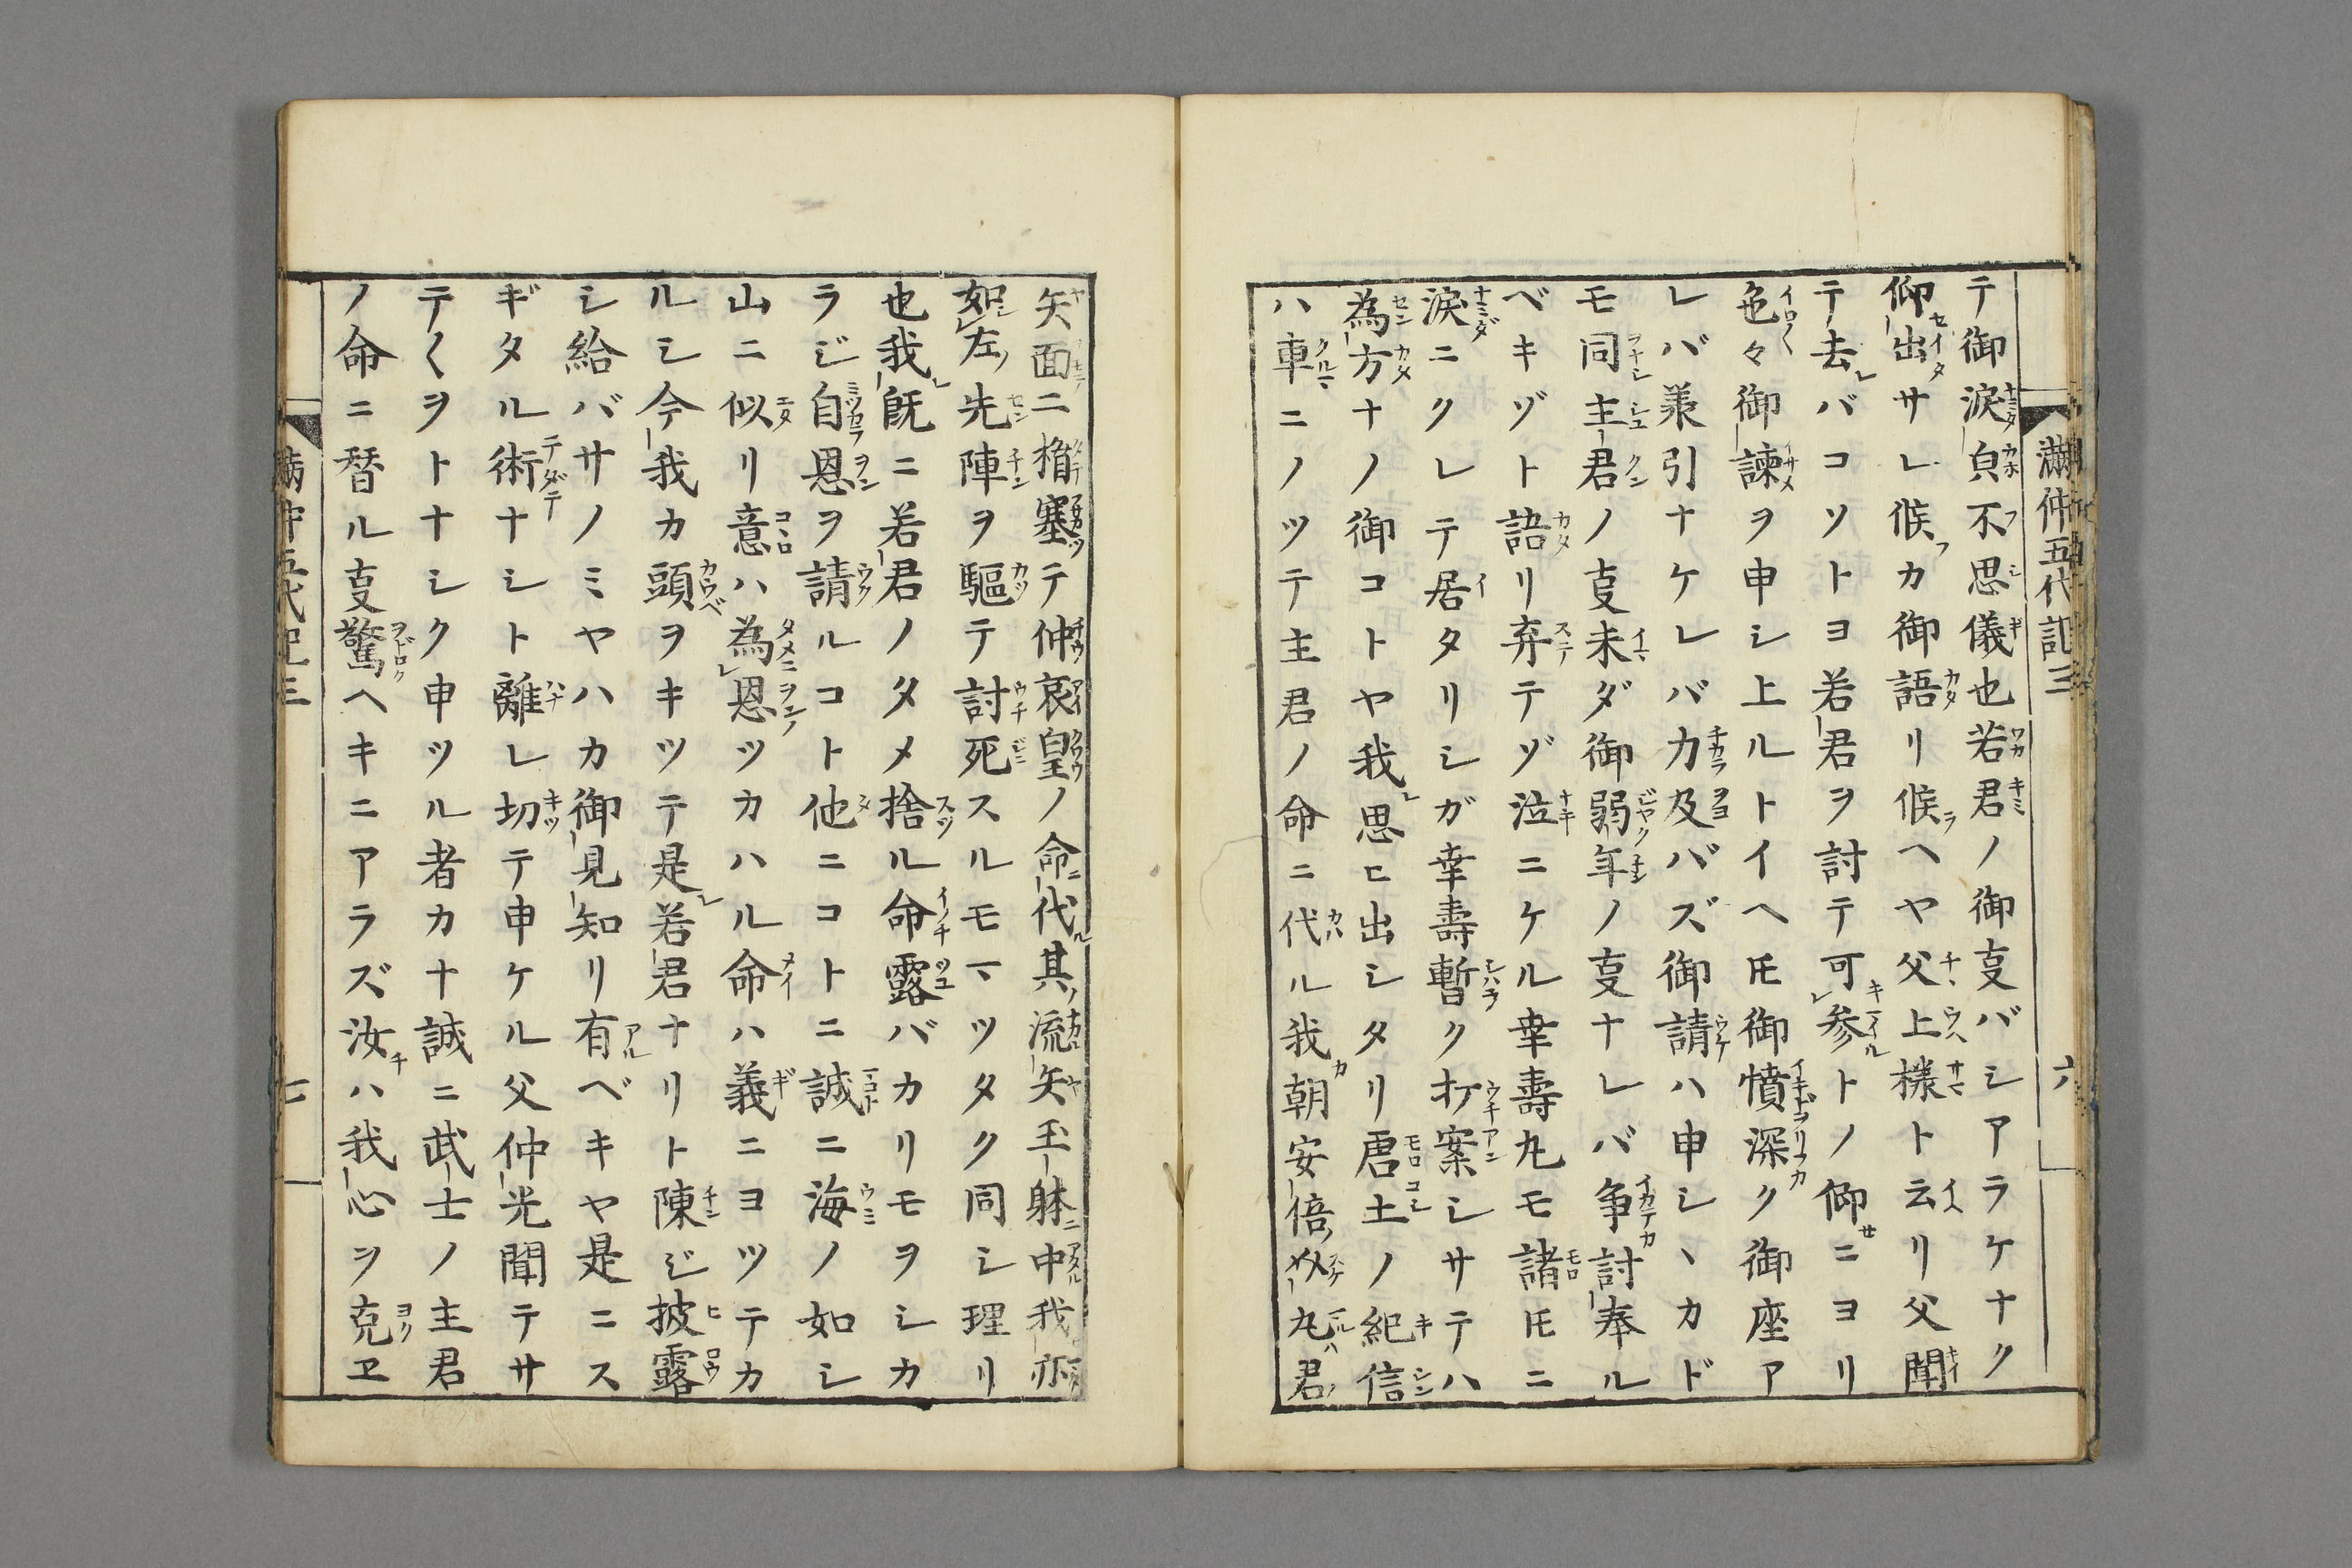 満仲五代記三 六
テ御涙㒵不思儀也若君ノ御叓バシアラケナク
仰出サレ候カ御語リ候ヘヤ父上様ト云リ父聞
テ去バコソトヨ若君ヲ討テ可参トノ仰ニヨリ
色々御諫ヲ申シ上ルトイヘ𪜈御憤深ク御座ア
レバ兼引ナケレバ力及バズ御請ハ申シヽカド
モ同主君ノ叓未ダ御弱年ノ叓ナレバ争討奉ル
ベキゾト語リ弃テゾ泣ニケル幸壽丸モ諸𪜈ニ
涙ニクレテ居タリシガ幸壽暫ク打案シサテハ
為方ナノ御コトヤ我思ヒ出シタリ唐土ノ紀信
ハ車ニノツテ主君ノ命ニ代ル我朝安倍丸君
矢面ニ楯塞テ仲哀皇ノ命代其流矢玉躰中我亦
如左先陣ヲ驅テ討死スルモマツタク同シ理リ
也我既ニ若君ノタメ捨ル命露バカリモヲシカ
ラジ自恩ヲ請ルコト他ニコトニ誠ニ海ノ如シ
山ニ似リ意ハ為恩ツカハル命ハ義ニヨツテカ
ルシ今我カ頭ヲキツテ是若君ナリト陳ジ披露
シ給バサノミヤハカ御見知リ有ベキヤ是ニス
ギタル術ナシト離レ切テ申ケル父仲光聞テサ
テ〱ヲトナシク申ツル者カナ誠ニ武士ノ主君
ノ命ニ替ル叓驚ヘキニアラズ汝ハ我心ヲ克ヱ
満仲五代記三 七